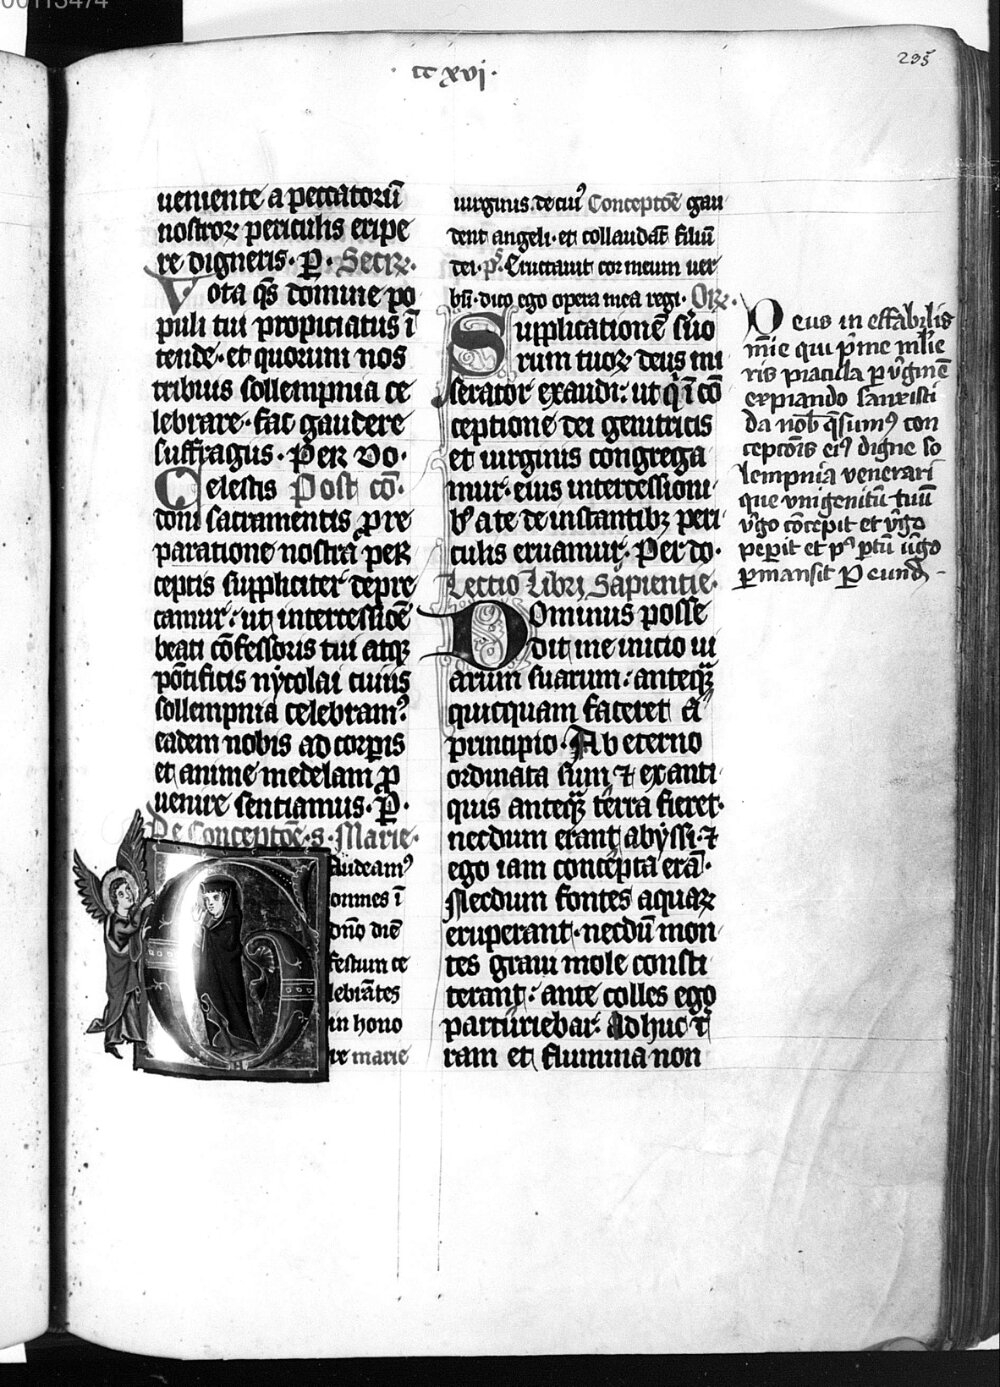 00113474
·cc xvi·
295
ueniente a peccatorū
nostroꝝ periculis eripe
re digneris· P̲· Secꝝ·
Vota qs̄ domine po
puli tui propiciatus ī
tende· et quorum nos
tribuis sollempnia ce
lebrare· fac gaudere
suffragiis· Per do·
Celestis Post cō·
doni sacramentis pre
paratione nostra per
ceptis suppliciter depre
camur: ut intercessiōe
beati cōfessoris tui atqꝫ
pōtificis nycolai cuius
sollempnia celebramꝰ
eadem nobis ad corpis
et anime medelam ꝓ
uenire sentiamus· P̲·
De Conceptōe· s· Marie·
Gaudeamꝰ
omnes ī
dn̄o diē
festum ce
lebrātes
in hono
re marie
uirginis. de cuiꝰ Conceptōe gau
dent angeli· et collaudāt filiū
dei· p̄s Eructauit cor meum uer
bū· dico ego opera mea regi· Orꝝ·
Supplicationē suo
rum tuoꝝ deus mi
serator exaudi: ut qͥ ī cō
ceptione dei genitricis
et uirginis congrega
mur· eius intercessioni
bꝰ a te de instantibꝫ peri
culis eruamur· Per do·
Lectio Libri Sapientie·
Dominus posse
dit me inicio ui
arum suarum: anteqͣ̄
quicquam faceret a
principio· Ab eterno
ordinata sum ⁊ ex anti
quis anteqͣ̄ terra fieret·
necdum erant abyssi· ⁊
ego iam concepta erā·
Necdum fontes aquaꝝ
eruperant· necdū mon
tes graui mole consti
terant: ante colles ego
parturiebar· Adhuc t̄
ram et flumina non
Deus in effabilis
mīe qui p̄me mlie
ris piacula ꝑ ūginē
expiando sanxisti
da nob̄ qͣsumꝰ con
ceptōis eiꝰ digne so
lempnia venerari
que vnigenitū tuū
v̄go cōcepit et v̄go
peperit et pꝰ ꝑtū v̄go
ꝑmansit P̲ eund̄ ·